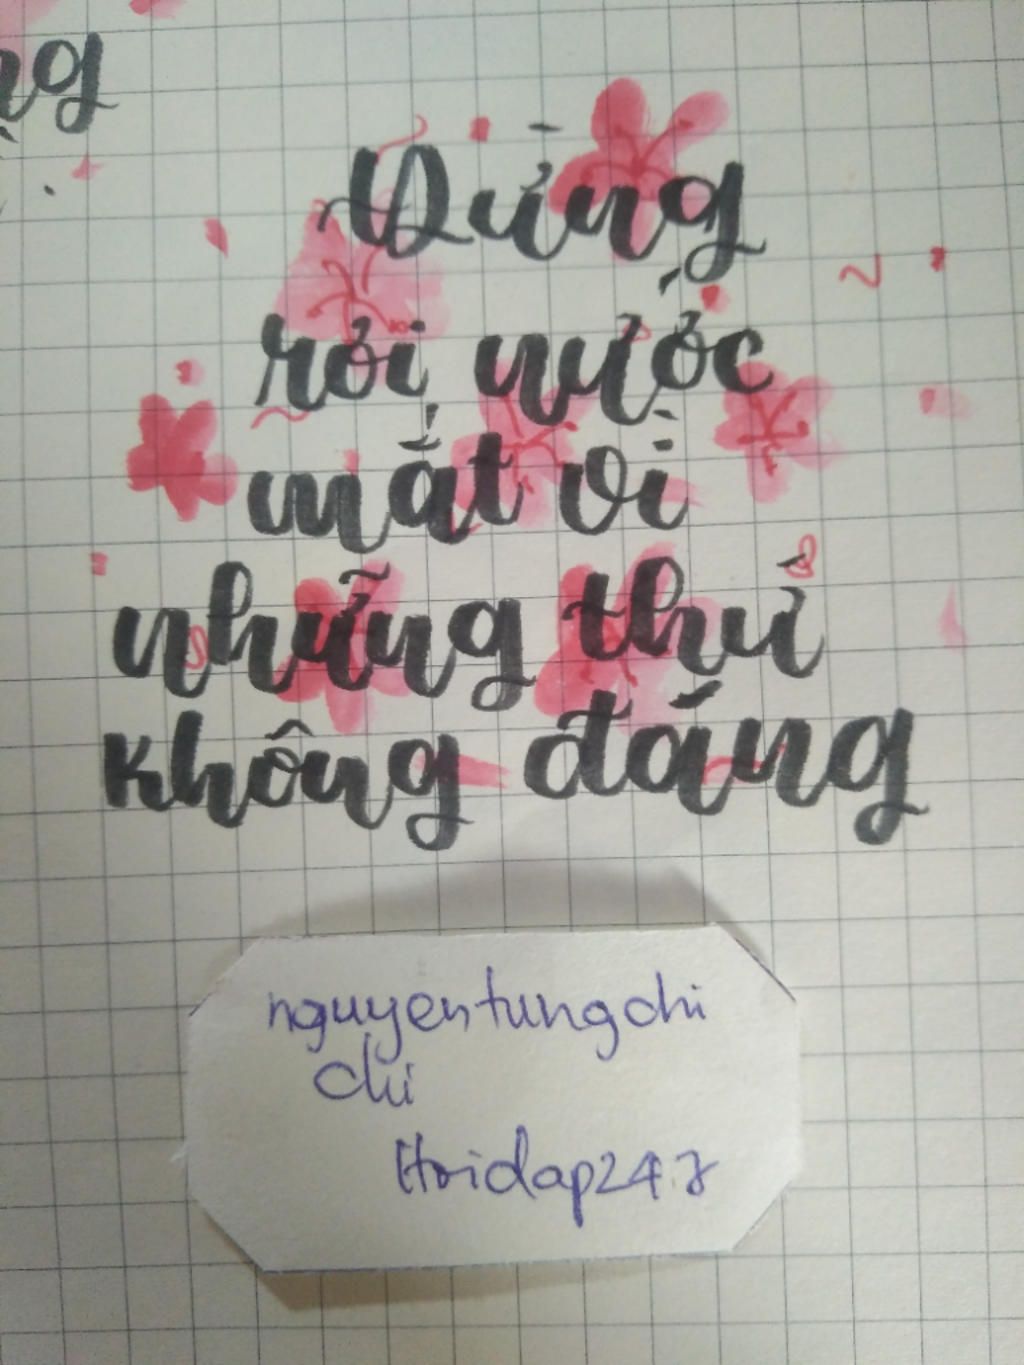 ng
Đừng
rơi nước
mắt vì
những thứ
không đáng
nguyentungchi
chi
Hoidap247